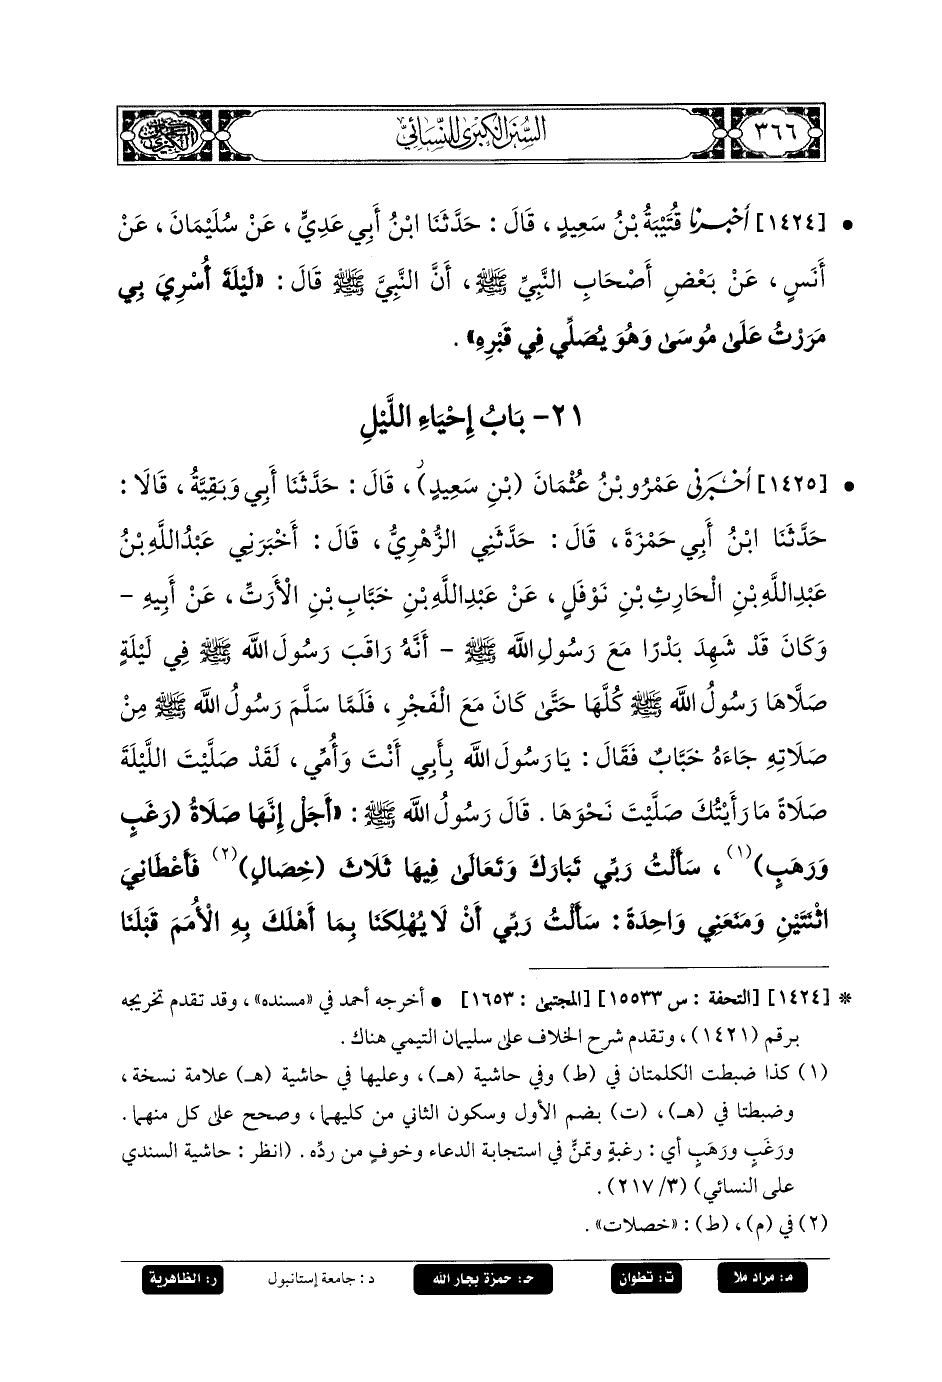 ٣٦٦
السُّنَنُ الكُبْرَى لِلنَّسَائِيِّ
• [١٤٢٤] أَخْبَرَنَا قُتَيْبَةُ بْنُ سَعِيدٍ، قَالَ: حَدَّثَنَا ابْنُ أَبِي عَدِيٍّ، عَنْ سُلَيْمَانَ، عَنْ
أَنَسٍ، عَنْ بَعْضِ أَصْحَابِ النَّبِيِّ ﷺ، أَنَّ النَّبِيَّ ﷺ قَالَ: «لَيْلَةَ أُسْرِيَ بِي
مَرَرْتُ عَلَى مُوسَى وَهُوَ يُصَلِّي فِي قَبْرِهِ».
٢١- بَابُ إِحْيَاءِ اللَّيْلِ
• [١٤٢٥] أَخْبَرَنِي عَمْرُو بْنُ عُثْمَانَ (بْنِ سَعِيدٍ)، قَالَ: حَدَّثَنَا أَبِي وَبَقِيَّةُ، قَالَا:
حَدَّثَنَا ابْنُ أَبِي حَمْزَةَ، قَالَ: حَدَّثَنِي الزُّهْرِيُّ، قَالَ: أَخْبَرَنِي عَبْدُاللَّهِ بْنُ
عَبْدِاللَّهِ بْنِ الْحَارِثِ بْنِ نَوْفَلٍ، عَنْ عَبْدِاللَّهِ بْنِ خَبَّابِ بْنِ الْأَرَتِّ، عَنْ أَبِيهِ -
وَكَانَ قَدْ شَهِدَ بَدْرًا مَعَ رَسُولِ اللَّهِ ﷺ - أَنَّهُ رَاقَبَ رَسُولَ اللَّهِ ﷺ فِي لَيْلَةٍ
صَلَّاهَا رَسُولُ اللَّهِ ﷺ كُلَّهَا حَتَّى كَانَ مَعَ الْفَجْرِ، فَلَمَّا سَلَّمَ رَسُولُ اللَّهِ ﷺ مِنْ
صَلَاتِهِ جَاءَهُ خَبَّابٌ فَقَالَ: يَا رَسُولَ اللَّهِ بِأَبِي أَنْتَ وَأُمِّي، لَقَدْ صَلَّيْتَ اللَّيْلَةَ
صَلَاةً مَا رَأَيْتُكَ صَلَّيْتَ نَحْوَهَا. قَالَ رَسُولُ اللَّهِ ﷺ: «أَجَلْ إِنَّهَا صَلَاةُ (رَغَبٍ
وَرَهَبٍ)(١)، سَأَلْتُ رَبِّي تَبَارَكَ وَتَعَالَى فِيهَا ثَلَاثَ (خِصَالٍ)(٢) فَأَعْطَانِيَ
اثْنَتَيْنِ وَمَنَعَنِي وَاحِدَةً: سَأَلْتُ رَبِّي أَنْ لَا يُهْلِكَنَا بِمَا أَهْلَكَ بِهِ الْأُمَمَ قَبْلَنَا
* [١٤٢٤] [التحفة: س ١٥٥٣٣] [المجتبى: ١٦٥٣] • أخرجه أحمد في «مسنده»، وقد تقدم تخريجه
برقم (١٤٢١)، وتقدم شرح الخلاف على سليمان التيمي هناك.
(١) كذا ضبطت الكلمتان في (ط) وفي حاشية (هـ)، وعليها في حاشية (هـ) علامة نسخة،
وضبطتا في (هـ)، (ت) بضم الأول وسكون الثاني من كليهما، وصحح على كل منهما.
ورَغَبٍ ورَهَبٍ أي: رغبةٍ وتمنٍّ في استجابة الدعاء وخوفٍ من ردِّه. (انظر: حاشية السندي
على النسائي) (٣/ ٢١٧).
(٢) في (م)، (ط): «خصلات».
مـ: مراد ملا ت: تطوان حـ: حمزة بجار الله د: جامعة إستانبول ر: الظاهرية